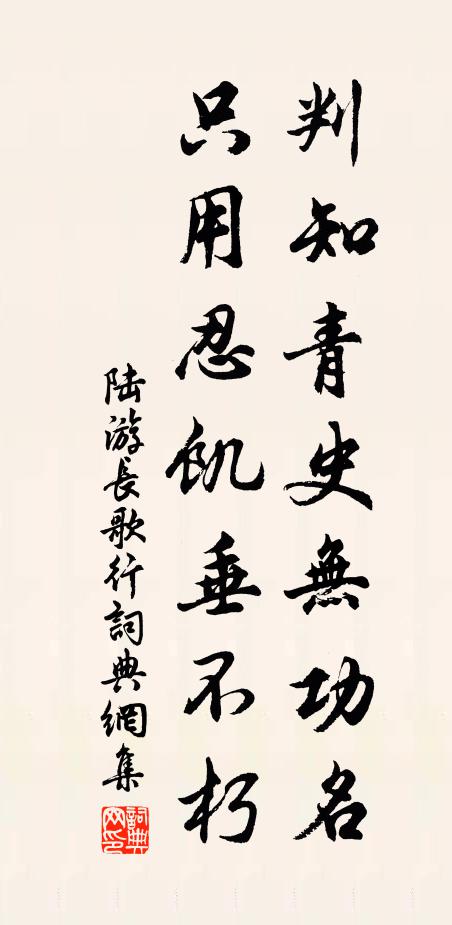 判知青史無功名
只用忍飢垂不朽
陸游長歌行詞典網集
詞典網印